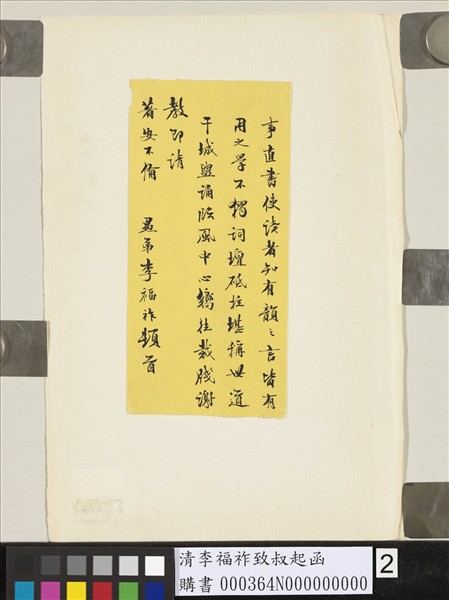 事直書使讀者知有韻之言皆有
用之學不獨詞壇砥柱堪稱世道
干城盥誦臨風中心嚮往裁牋謝
教即請
著安不備 愚弟李福祚頓首
清李福祚致叔起函
購書 000364N000000000
2